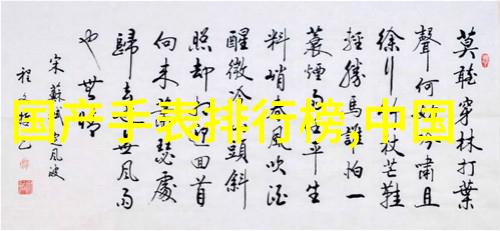 国产手表排行榜,中国
莫聽穿林打葉
聲何嘯且
徐行杖芒鞋
輕勝馬誰怕一
蓑煙任平生
料峭風吹酒
醒微冷頭斜
照却迎回首
向来瑟處
歸去無風雨
也無晴
宋蘇軾風波